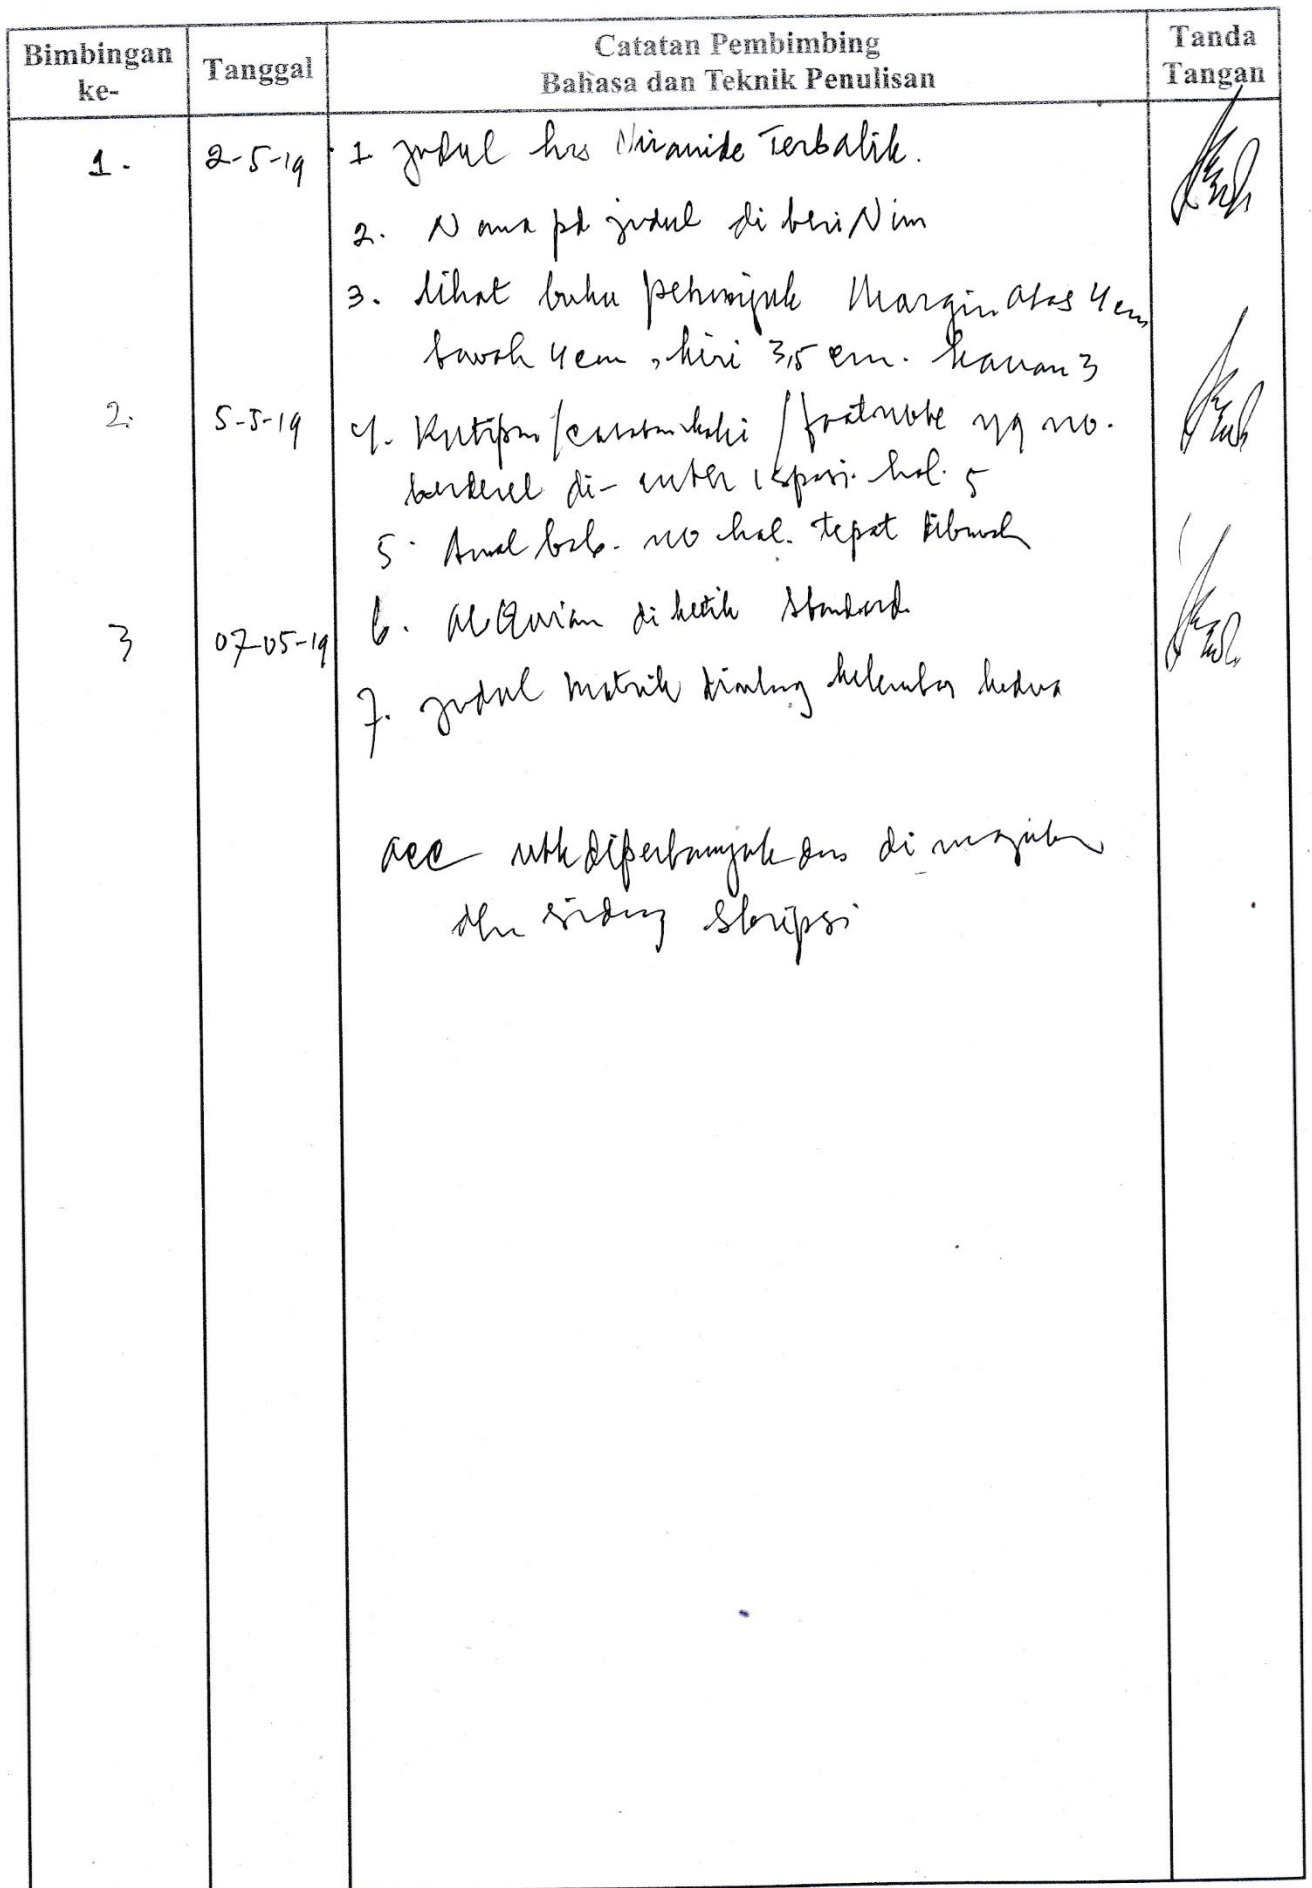 Bimbingan ke-
Tanggal
Catatan Pembimbing
Bahasa dan Teknik Penulisan
Tanda Tangan
1. 2-5-19 1 judul hrs Piramide Terbalik.
2. Nama pd judul di beri Nim
3. lihat buku petunjuk Margin atas 4 cm
bawah 4 cm, kiri 3,5 cm. kanan 3
2. 5-5-19 4. Kutipan/catatan kaki/footnote yg no.
berderet di-enter 1 spasi. hal. 5
5. Awal bab. no hal. tepat dibawah
3 07-05-19 6. Al Qur'an di ketik Standard.
7. judul Matrik kelembar kedua
acc utk diperbanyak dan di majukan
dlm sidang Skripsi